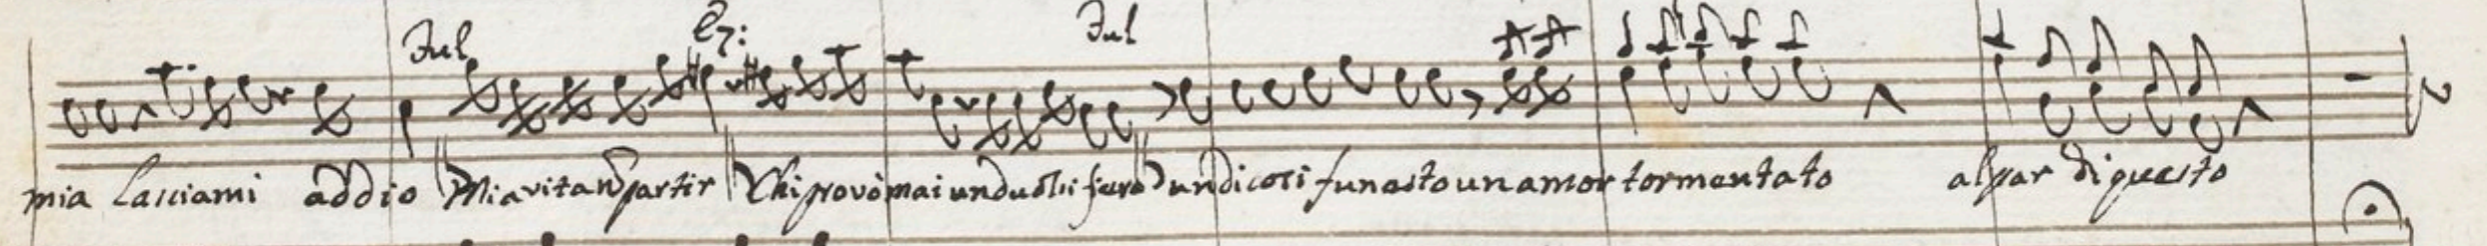 Jul Ez: Jul
mia lasciami addio Mia vita partir Chi provò mai un duol si fiero un di così funesto un amor tormentato al par di questo